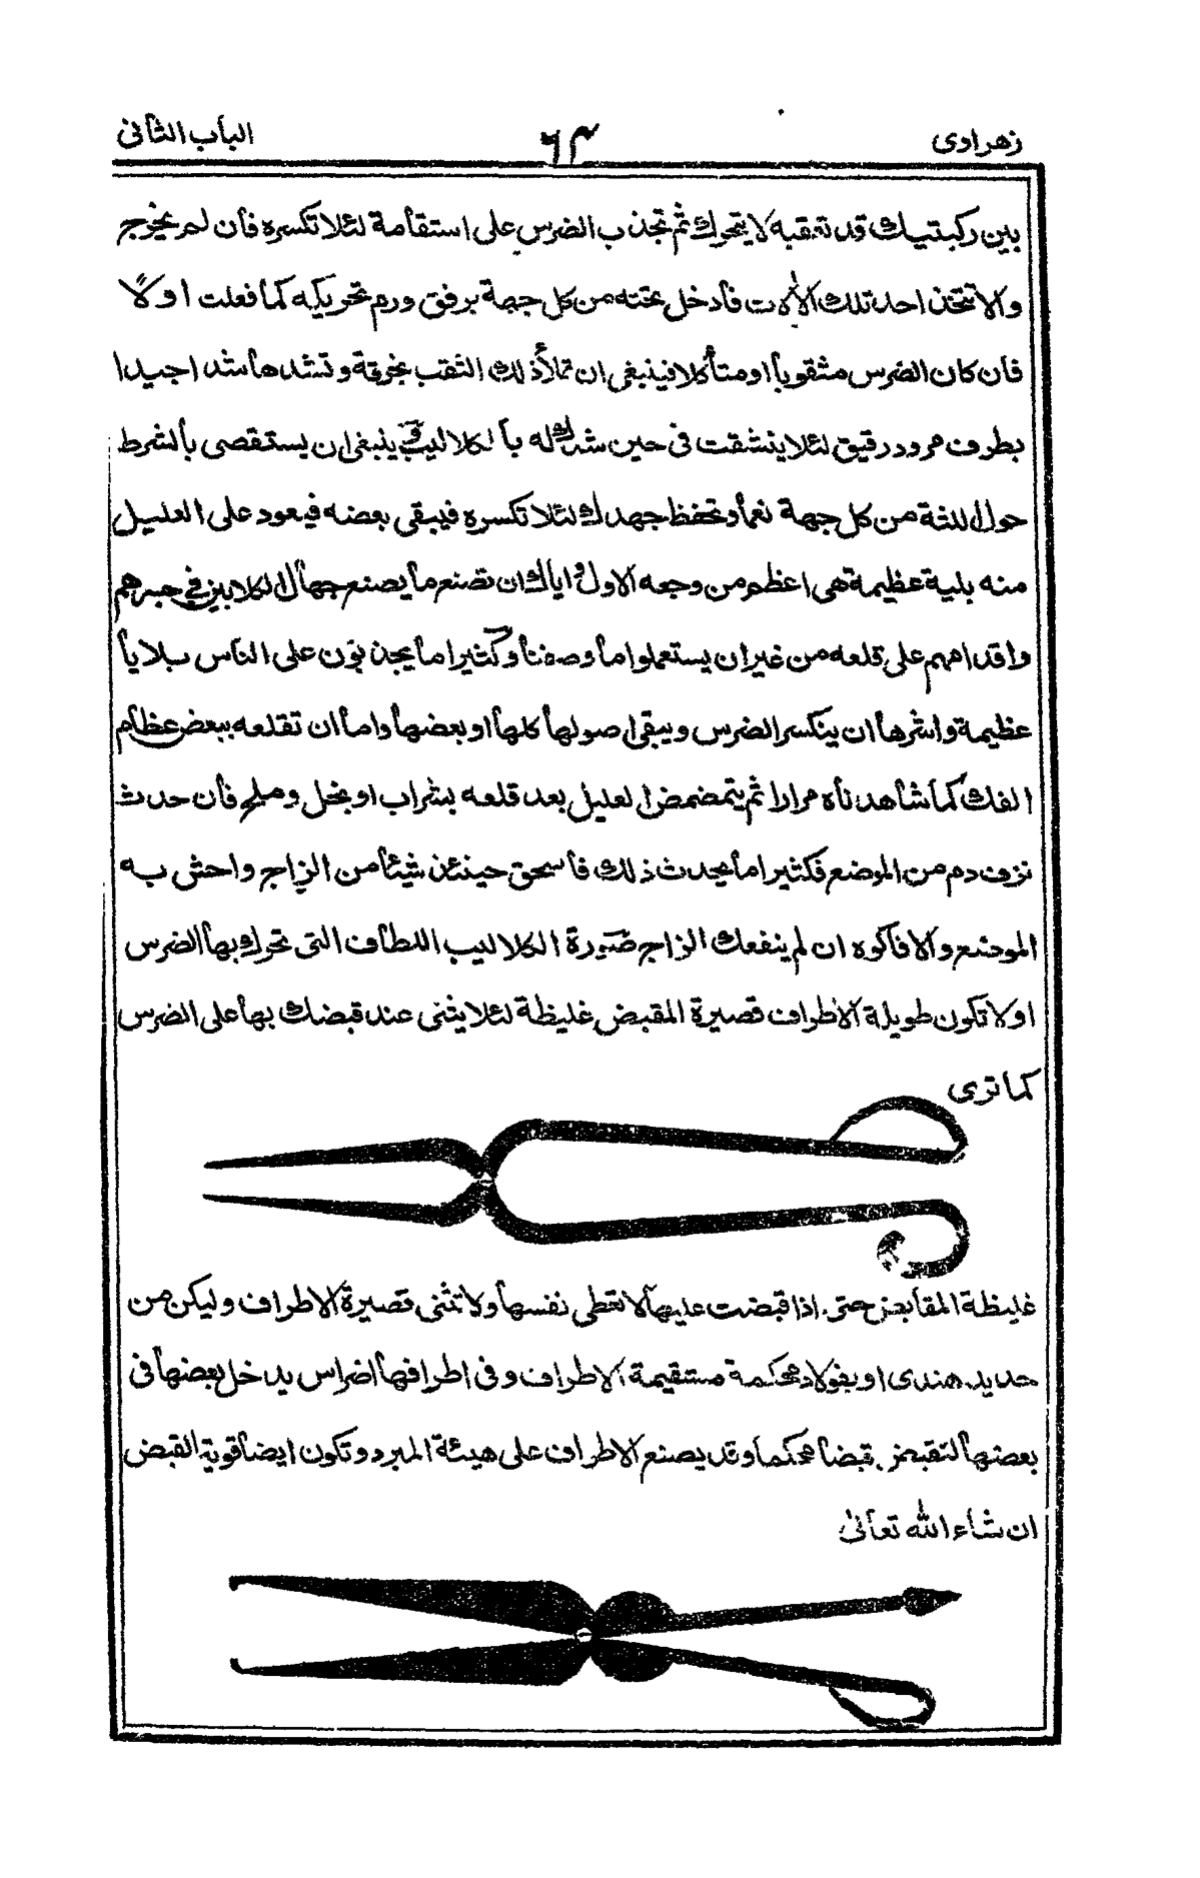 زهراوى ٦٣ الباب الثانى
بين ركبتيك قد ثقبته لا يتحرك ثم تجذب الضرس على استقامة لئلا تكسره فان لم يخرج
والا تتخذ احد تلك الالات فادخل تحته من كل جهة برفق ورم تحريكه كما فعلت اولًا
فان كان الضرس مثقوبا او متأكلا فينبغى ان تملأ ذلك الثقب بخرقة وتشدها شدا جيدا
بطرف مرود رقيق لئلا ينشقت فى حين شدك له بالكلاليب وينبغى ان يستقصى بالشرط
حول اللثة من كل جهة نعما وتحفظ جهدك لئلا تكسره فيبقى بعضه فيعود على العليل
منه بلية عظيمة هى اعظم من وجعه الاول واياك ان تصنع ما يصنع جهال الكلابين فى جسرهم
واقدامهم على قلعه من غير ان يستعملوا ما وصفنا وكثيرا ما يجذبون على الناس بلايا
عظيمة واشرها ان ينكسر الضرس ويبقى اصولها كلها او بعضها واما ان تقلعه ببعض عظام
الفك كما شاهدناه مرارا ثم يتمضمض العليل بعد قلعه بشراب او بخل وملح فان حدث
نزف دم من الموضع فكثيرا ما يحدث ذلك فاسحق حينئذ شيئا من الزاج واحش به
الموضع والا فاكوه ان لم ينفعك الزاج صورة الكلاليب اللطاف التى تحرك بها الضرس
اولا تكون طويلة الاطراف قصيرة المقبض غليظة لئلا يثنى عند قبضك بها على الضرس
كما ترى
غليظة المقابض حتى اذا قبضت عليها لا تعطى نفسها ولا تثنى قصيرة الاطراف وليكن من
حديد هندى او بفولاد محكمة مستقيمة الاطراف وفى اطرافها اضراس يدخل بعضها فى
بعضها لتقبض قبضا محكما وقد يصنع الاطراف على هيئة المبرد وتكون ايضا قوية القبض
ان شاء الله تعالىٰ